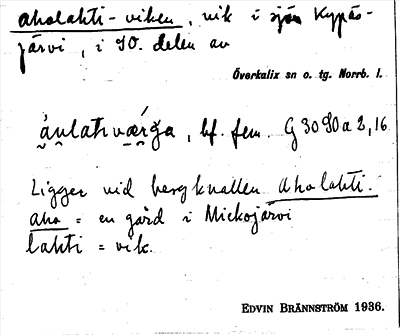 aholahti-viken, vik i sjön Kypäs-
järvi, i SO. delen av
Överkalix sn o. tg. Norrb. l.
bf. fem. G 30 90 a 2, 16
Ligger vid bergknallen Aholahti.
aho = en gård i Mickojärvi
lahti = vik.
EDVIN BRÄNNSTRÖM 1936.